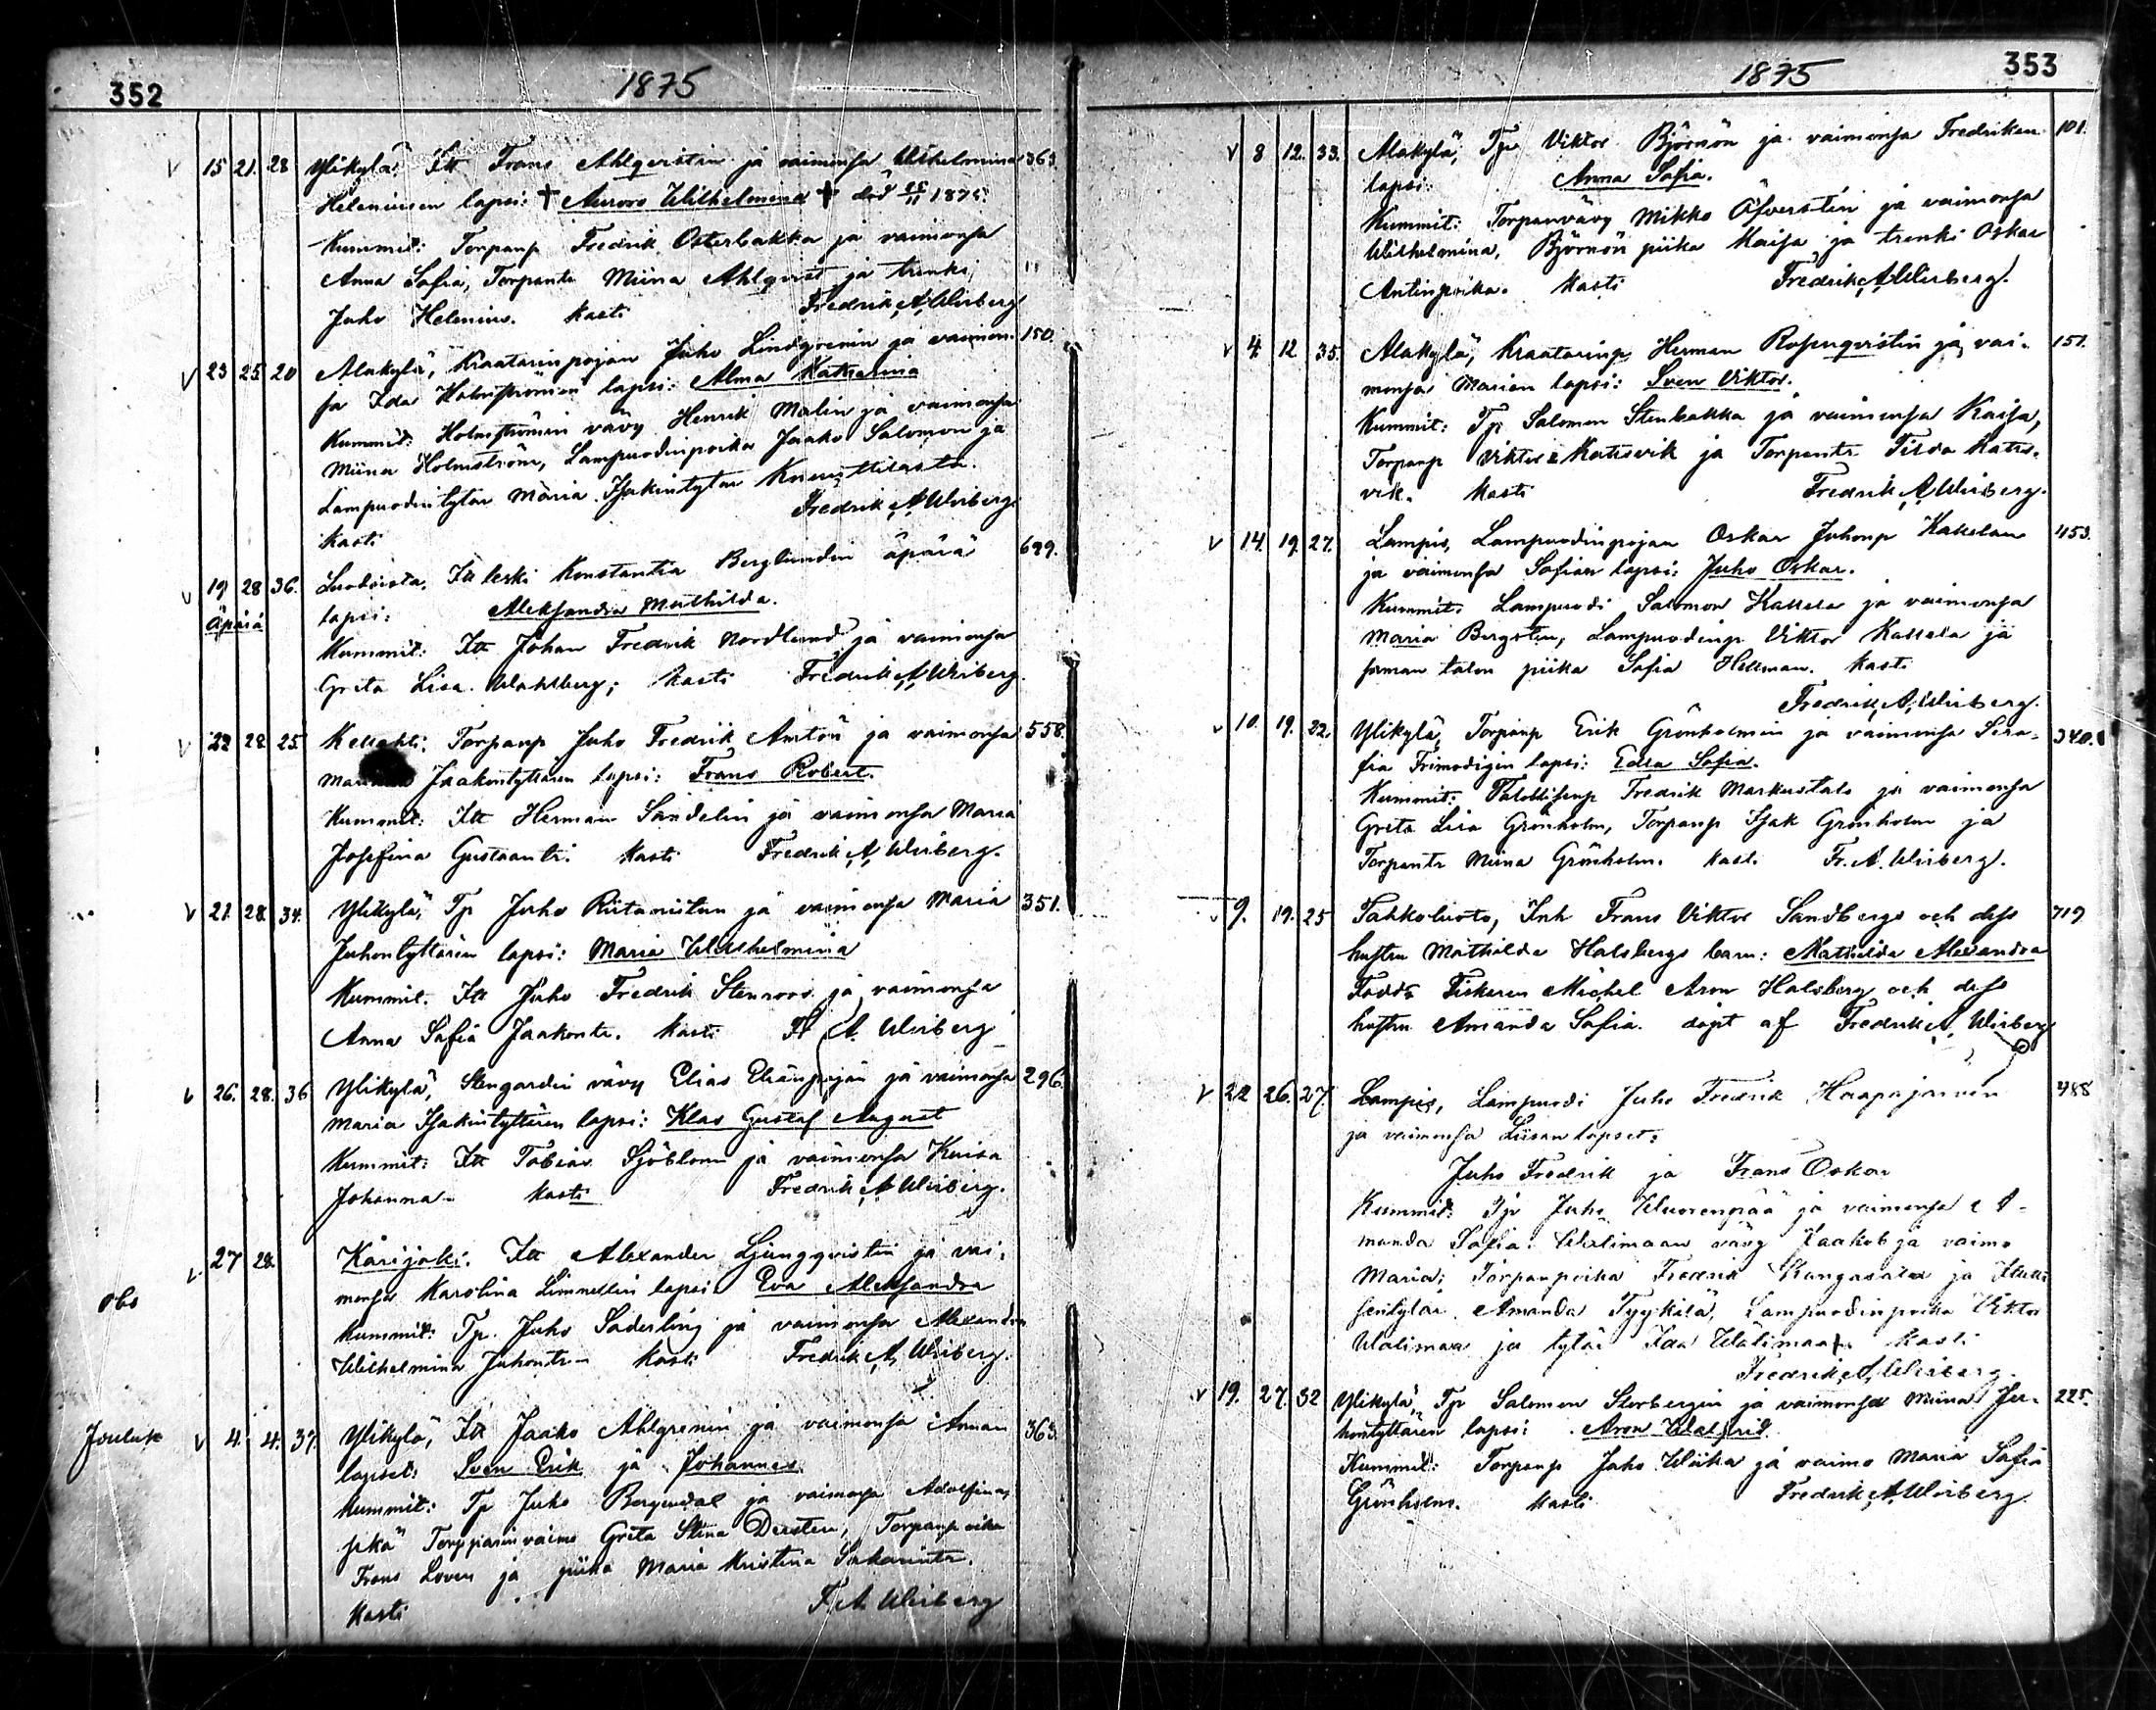 352
1875
15 21. 28 Ylikylä, Itt Frans Ahlqvistin ja vaimonsa Wilhelmina 363.
Heleniusen lapsi: † Aurora Wilhelmina † död 1875.
Kummit: Torpanp Fredrik Österbakka ja vaimonsa
Anna Sofia, Torpantr Miina Ahlqvist ja trenki
Juho Helenius. kasti Fredrik A. Wirberg
23 25 20 Alakylä, Kraatarinpojan Juho Lindgrenin ja vaimon- 150.
sa Ida Holmströmin lapsi: Alma Katharina
Kummit: Holmströmin vävy Henrik Malin ja vaimonsa
Miina Holmström, Lampuodinpoika Jaako Salomon ja
Lampuodintytär Maria Isakintytär
kasti Fredrik A. Wirberg.
19 28 36. Luodoista. Itt leski Konstantia Berglundin äpärä 699.
Äpärä lapsi: Aleksandra Mathilda.
Kummit: Itt Johan Fredrik Nordlund ja vaimonsa
Greta Lisa Wahlberg; kasti Fredrik A. Wirberg.
22 28 25. Kellahti. Torpanp Juho Fredrik ja vaimonsa 558.
Jaakontyttären lapsi: Frans Robert.
Kummit: Itt Herman Sandelin ja vaimonsa Maria
Josefina Gustaantr. kasti Fredrik A. Wirberg.
21. 28. 34. Ylikylä, Tp Juho Riitaniitun ja vaimonsa Maria 351.
Juhontyttären lapsi: Maria Wilhelmina
Kummit. Itt Juho Fredrik Stenroos ja vaimonsa
Anna Sofia Jaakontr. kasti F. A. Wirberg
26. 28. 36 Ylikylä, Stengardin vävy Elias Elianpojan ja vaimonsa 296.
Maria Isakintyttären lapsi: Klas Gustaf August
Kummit: Itt Tobias Sjöblom ja vaimonsa
Johanna- kasti Fredrik A. Wirberg.
27 28. Karijoki. Itt Alexander Ljungqvistin ja vai-
monsa Karolina lapsi Eva Aleksandra
obs Kummit: Tp. Juho Söderling ja vaimonsa Alexandra
Wilhelmina Juhontr- kasti Fredrik A. Wirberg.
Jouluk 4. 4. 37. Ylikylä, Itt Jaako Ahlgrenin ja vaimonsa Annan 363.
lapset: Sven Erik ja Johannes
Kummit: Tp Juho Bergendal ja vaimonsa Adolfina,
sekä Torpparin vaimo Greta Stina Torpanpoika
Frans Loven ja piika Maria Kristina Sakariintr.
kasti F. A. Wirberg
1875
353
8 12. 33. Alakylä, Tp Viktor Björnön ja vaimonsa Fredrikan 101.
lapsi: Anna Sofia.
Kummit: Torpanvävy Mikko Öfverstin ja vaimonsa
Wilhelmina, Björnön piika Kaisa ja trenki Oskar
Antinpoika. kasti Fredrik A. Wirberg.
4. 12 35. Alakylä, Kraatarinp Herman Rosenqvistin ja vai- 151.
monsa Marian lapsi: Sven Viktor.
Kummit: Tp Salomon Stenbakka ja vaimonsa Kaisa,
Torpanp Viktor Katisvik ja Torpantr Tilda Katis-
vik. kasti Fredrik A. Wirberg.
14. 19. 27. Lampis, Lampuodinpojan Oskar Juhonp Kallelan 453.
ja vaimonsa Sofian lapsi: Juho Oskar.
Kummit: Lampuodi Salomon Kallela ja vaimonsa
Maria Bergsten, Lampuodinp Viktor Kallela ja
saman talon piika Sofia Hellman. kasti
Fredrik A. Wirberg.
10. 19. 32. Ylikylä, Torpanp Erik Grönholmin ja vaimonsa Sera- 340.
fia Frimodigin lapsi: Edla Sofia.
Kummit: Fredrik Markustalo ja vaimonsa
Greta Lisa Grönholm, Torpanp Isak Grönholm ja
Torpantr Miina Grönholm. kasti Fr. A. Wirberg.
9. 19. 25 Tahkoluoto, Inh Frans Viktor Sandbergs och dess 719.
hustru Mathilda Halsbergs barn: Mathilda Alexandra
Fadd: Fiskaren Michel Aron Halsberg och dess
hustru Amanda Sofia. döpt af Fredrik A. Wirberg
22 26. 27. Lampis, Lampuodi Juho Fredrik Haapajärven 488
ja vaimonsa Liisan lapset:
Juho Fredrik ja Frans Oskar
Kummit: Tp Juho Wuorenpää ja vaimonsa A-
manda Sofia. Wälimaan vävy Jaakob ja vaimo
Maria; Torpanpoika Fredrik Kangasala ja
Amanda Tyykilä, Lampuodinpoika Viktor
Wälimaa ja tytär Ida Wälimaa. kasti
Fredrik A. Wirberg.
19. 27. 32 Ylikylä, Tp Salomon Storbergin ja vaimonsa Miina Ju- 225.
hontyttären lapsi: Aron Walfrid
Kummit: Torpanp Juho Wiika ja vaimo Maria Sofia
Grönholm. kasti Fredrik A. Wirberg.